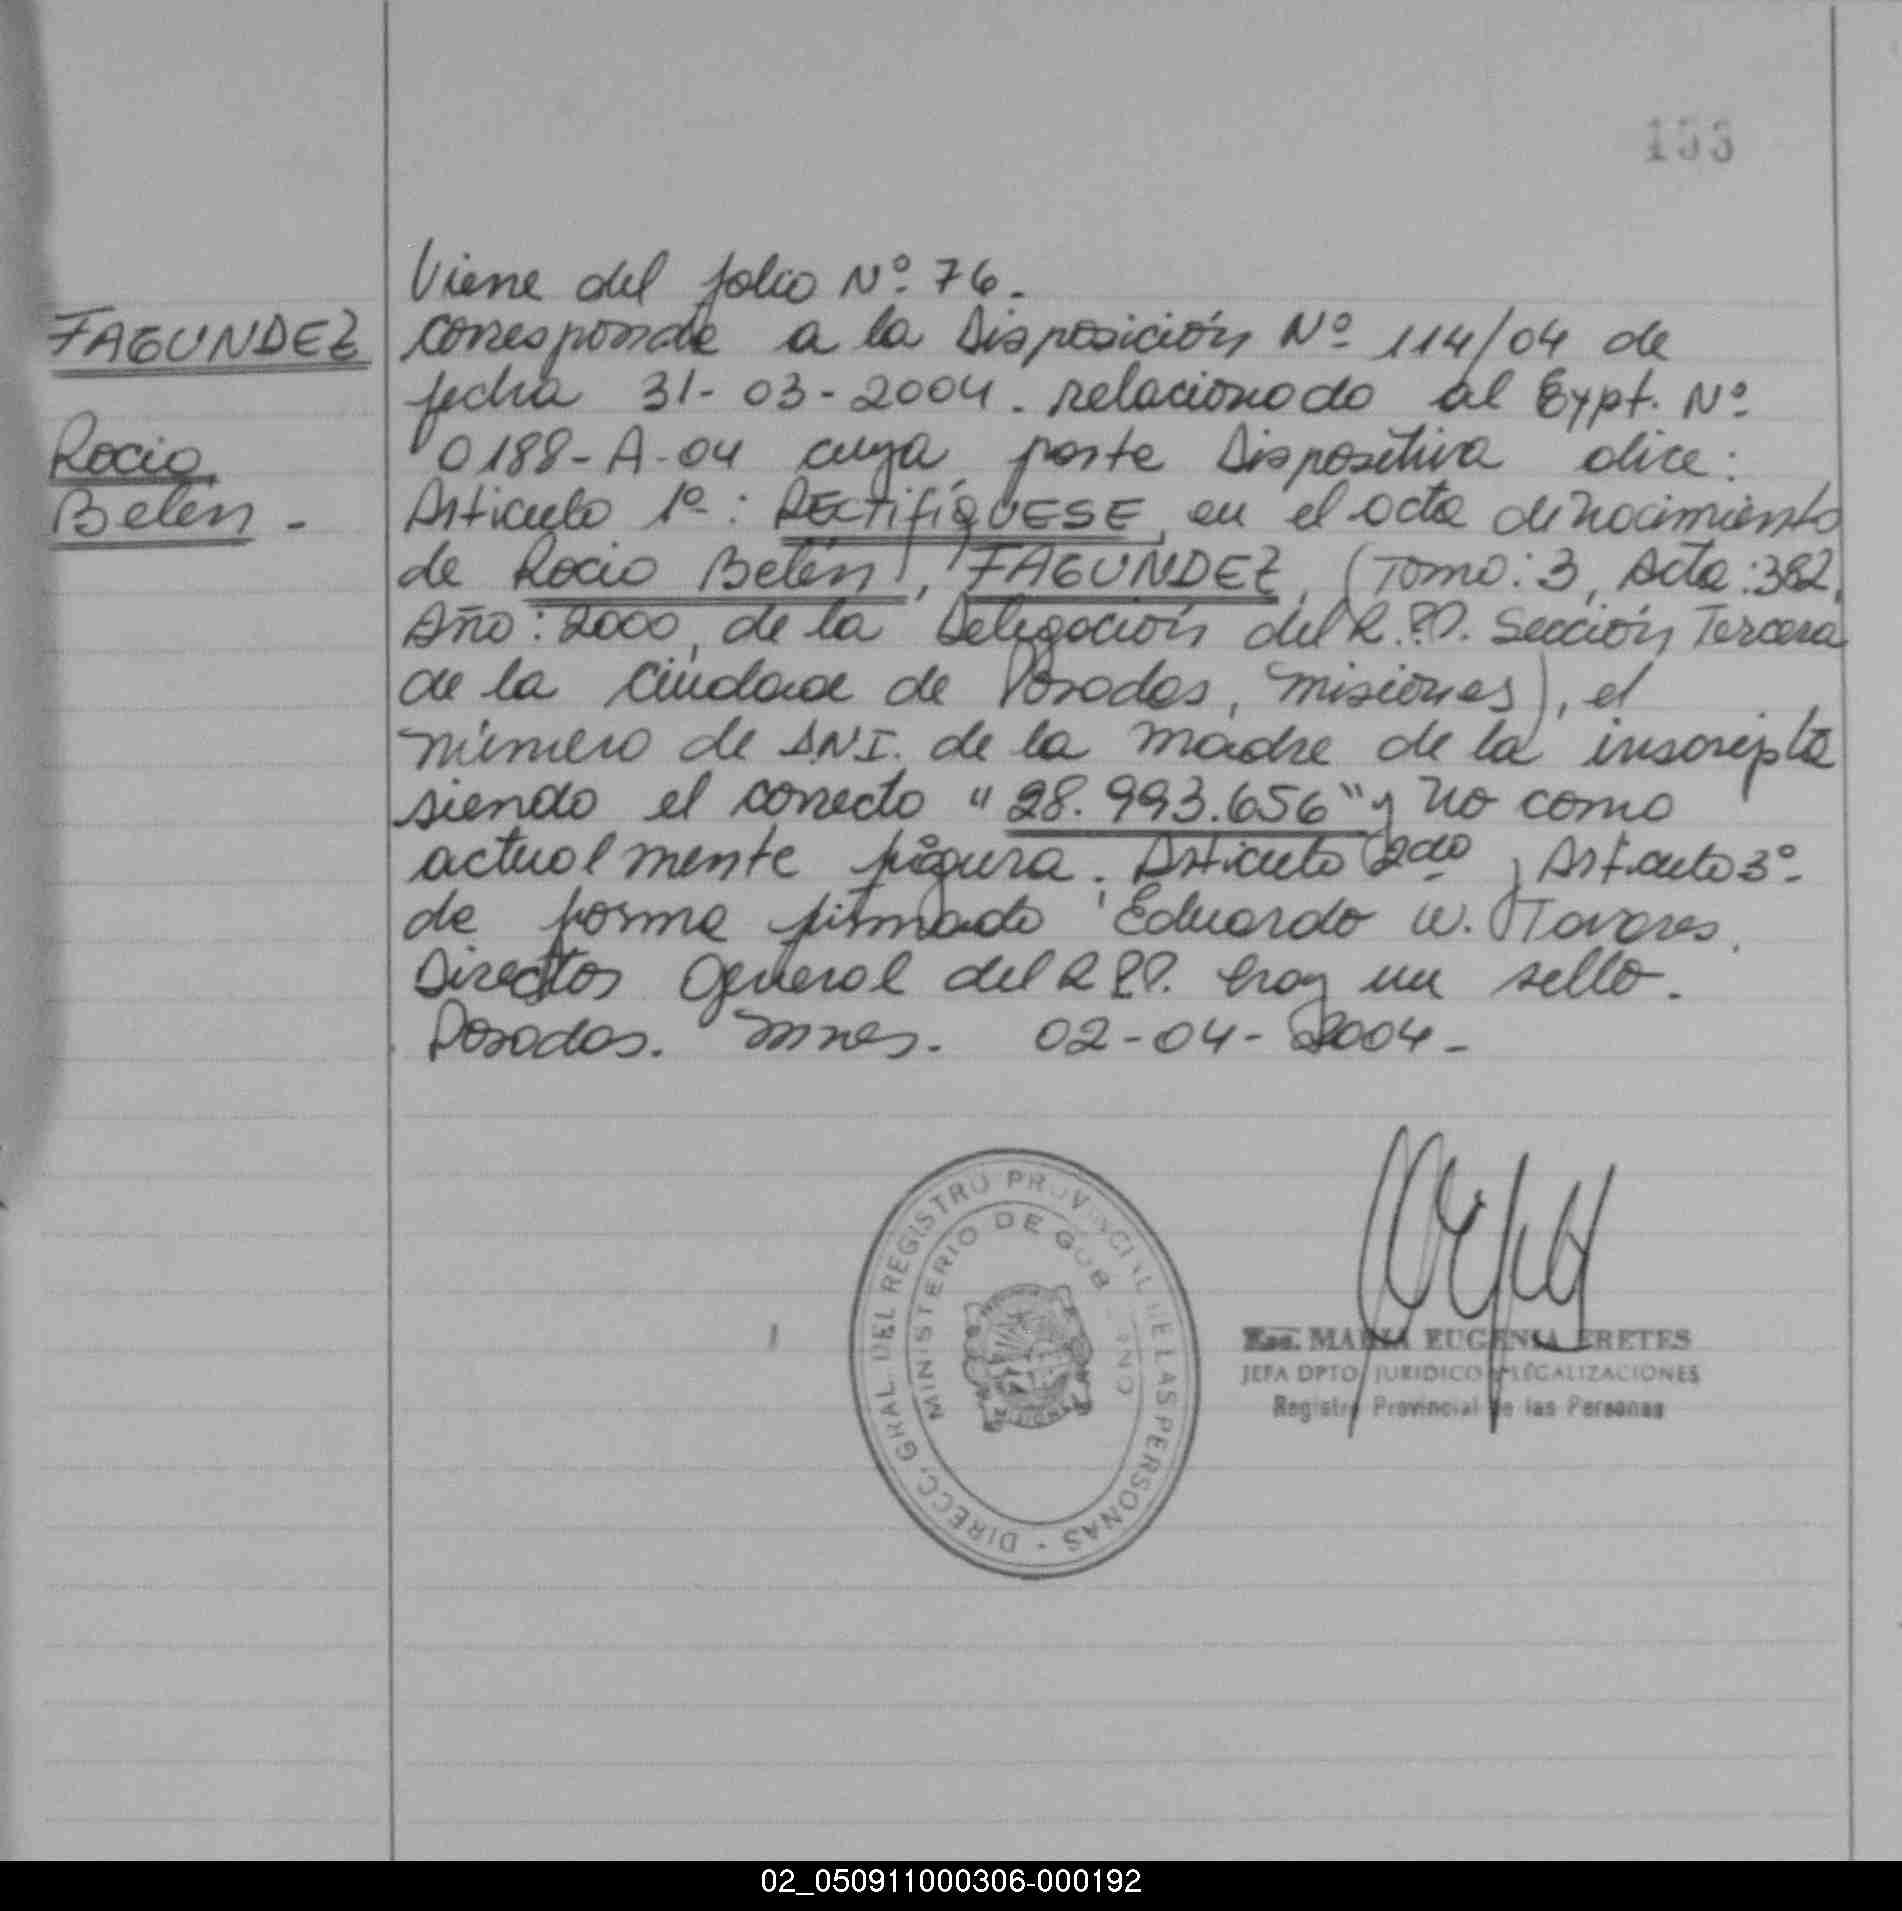 153
Viene del folio Nº 76.
FAGUNDEZ
corresponde a la Disposición Nº 114/04 de
fecha 31-03-2004. relacionado al Expt. Nº
Rocio
0188-A-04 cuya parte Dispositiva dice:
Belén -
Articulo 1º: RECTIFÍQUESE, en el acta de nacimiento
de Rocio Belén, FAGUNDEZ, (Tomo: 3, Acta: 382,
Año: 2000, de la Delegación del R.P.P. Sección Tercera
de la Ciudad de Posadas, Misiones), el
número de D.N.I. de la madre de la inscripta
siendo el correcto "28.993.656" y no como
actualmente figura. Articulo 2do y Articulo 3º-
de forma firmado Eduardo W. Tavares.
Director General del R.P.P. hay un sello.
Posadas. Mnes. 02-04-2004-
DIRECC. GRAL. DEL REGISTRO PROVINCIAL DE LAS PERSONAS -
MINISTERIO DE GOBIERNO
MISIONES
Esc. MARIA EUGENIA ERETES
JEFA DPTO. JURIDICO Y LEGALIZACIONES
Registro Provincial de las Personas
02_050911000306-000192